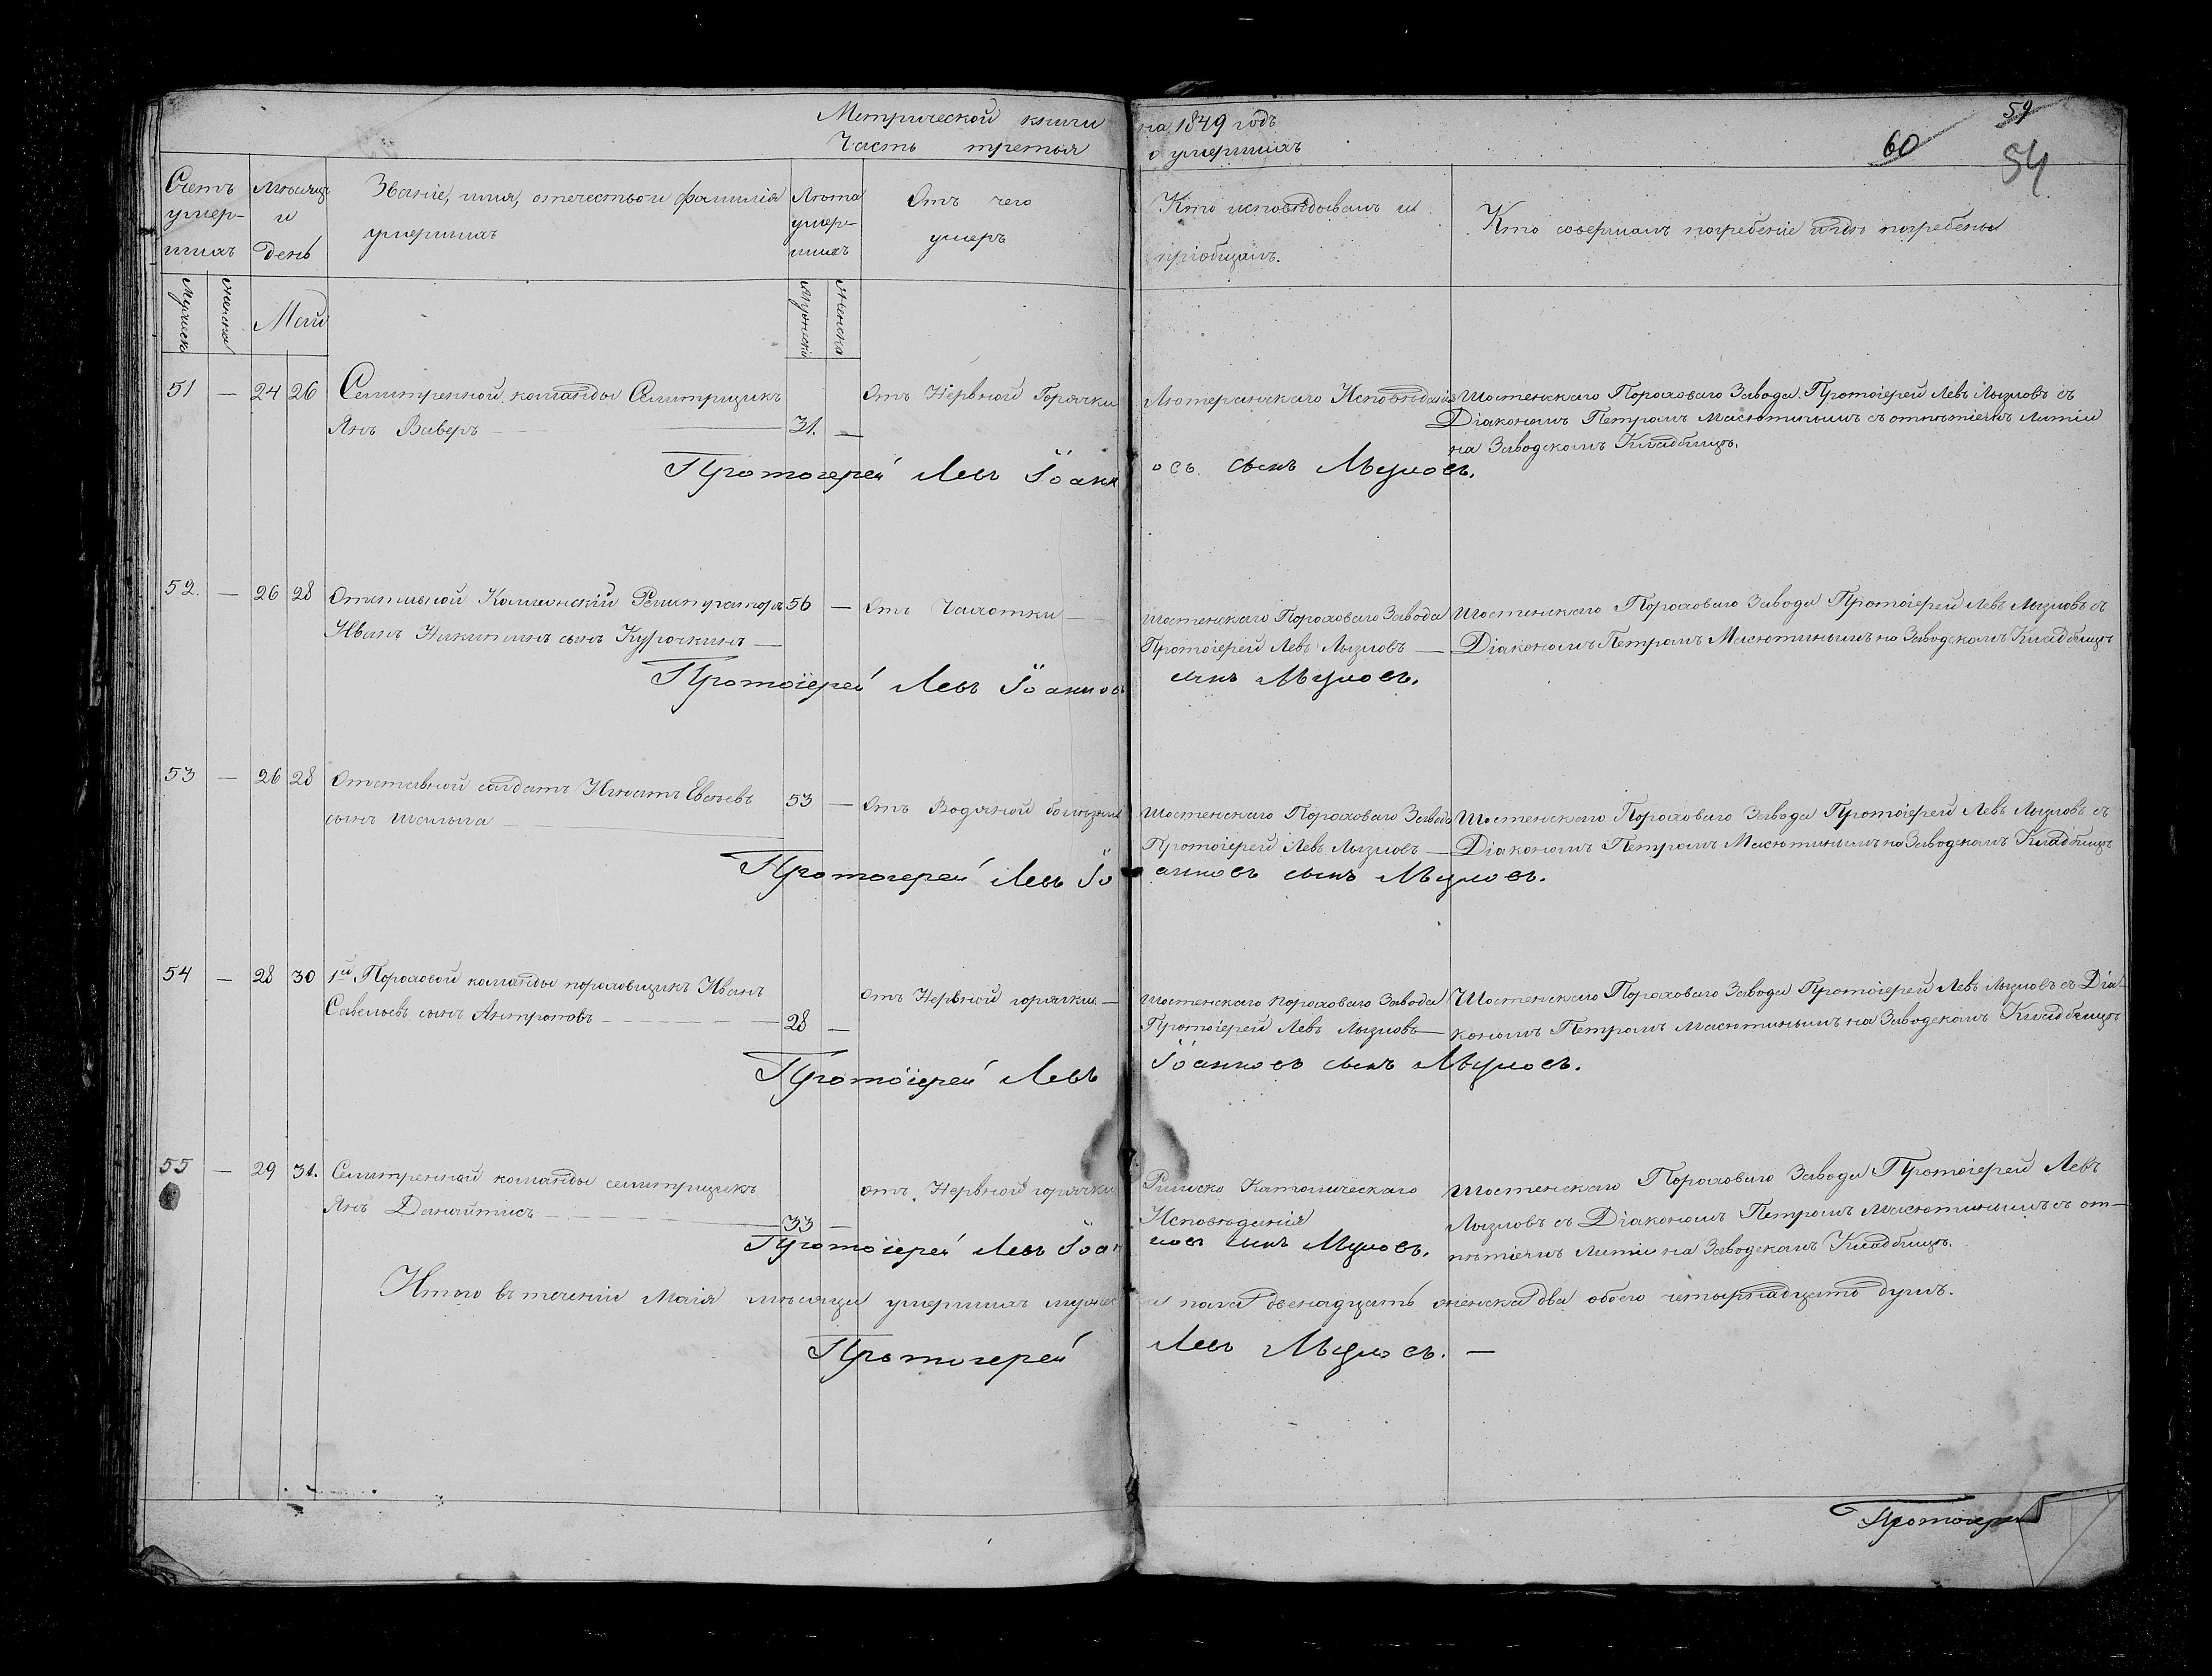 Метрической книги на 1849 годъ
Часть третья о умершихъ
59
60
54
Счетъ умер-шихъ
Мѣсяцъ и день
Званіе, имя, отечество и фамилія умершихъ
Лѣта умер-шихъ
Отъ чего умеръ
Кто исповѣдывалъ и пріобщалъ.
Кто совершалъ погребеніе и гдѣ погребены
Мужеск
женска
Май
Мужеска
Женска
51 — 24 26 Селитренной команды Селитрщикъ Отъ Нервной Горячки Лютеранскаго Исповѣданія Шостенскаго Пороховаго Завода Протоіерей Левъ Лызловъ съ
Янъ Виверъ 31. — Діакономъ Петромъ Масютинымъ съ отпѣтіемъ Литіи
на Заводскомъ Кладбищѣ.
Протоіерей Левъ Іоанновъ сынъ Лызловъ.
52. — 26 28 Отставной Коллежскій Регистраторъ 56 — Отъ Чахотки Шостенскаго Пороховаго Завода Шостенскаго Пороховаго Завода Протоіерей Левъ Лызловъ съ
Иванъ Никитинъ сынъ Курочкинъ — Протоіерей Левъ Лызловъ — Діакономъ Петромъ Масютинымъ на Заводскомъ Кладбищѣ
Протоіерей Левъ Іоанновъ сынъ Лызловъ.
53 — 26 28 Отставной салдатъ Игнатъ 53 — Отъ Водяной болѣзни Шостенскаго Пороховаго Завода Шостенскаго Пороховаго Завода Протоіерей Левъ Лызловъ съ
сынъ Протоіерей Левъ Лызловъ — Діакономъ Петромъ Масютинымъ на Заводскомъ Кладбищѣ
Протоіерей Левъ Іоанновъ сынъ Лызловъ.
54 — 28 30 1й Пороховой команды пороховщикъ Иванъ Отъ Нервной горячки — Шостенскаго Пороховаго Завода Шостенскаго Пороховаго Завода Протоіерей Левъ Лызловъ съ Діа-
Савельевъ сынъ Антроповъ 28 — Протоіерей Левъ Лызловъ — кономъ Петромъ Масютинымъ на Заводскомъ Кладбищѣ
Протоіерей Левъ Іоанновъ сынъ Лызловъ.
55 — 29 31. Селитренной команды селитрщикъ отъ Нервной горячки Римско Католическаго Шостенскаго Пороховаго Завода Протоіерей Левъ
Янъ Данайтисъ 33 — Исповѣданія Лызловъ съ Діакономъ Петромъ Масютинымъ съ от-
пѣтіемъ Литіи на Заводскомъ Кладбищѣ.
Протоіерей Левъ Іоанновъ сынъ Лызловъ.
Итого въ теченіи Маія мѣсяца умершихъ мужеска пола двенадцать женска два обоего четырнадцать душъ.
Протоіерей Левъ Лызловъ. —
Протоіерей